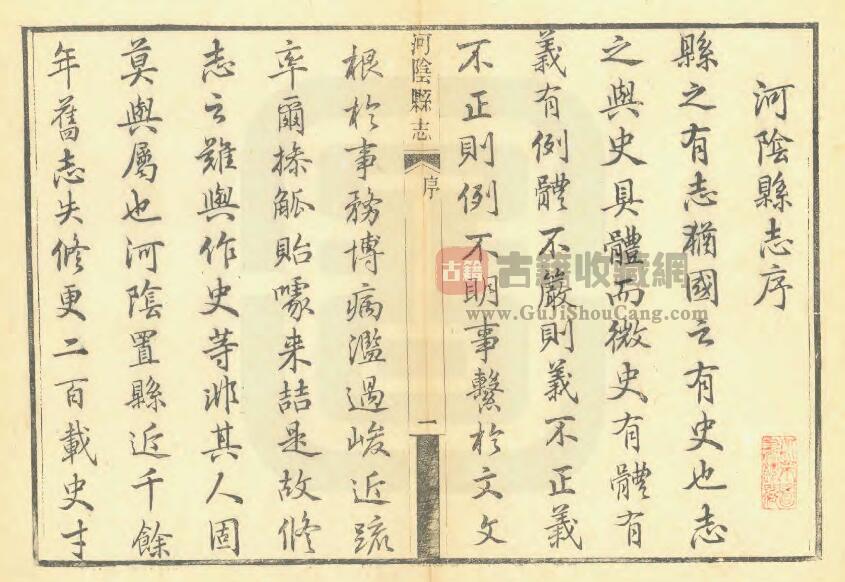 河陰縣志序
縣之有志猶國之有史也志
之與史具體而微史有體有
義有例體不嚴則義不正義
不正則例不明事繫於文文
河陰縣志
序
一
根於事務博病濫過峻近疏
率爾操觚貽嚎来詰是故修
志之難與作史等非其人固
莫與屬也河陰置縣近千餘
年舊志失修更二百載史才
古籍
古籍收藏網
www.GuJiShouCang.com